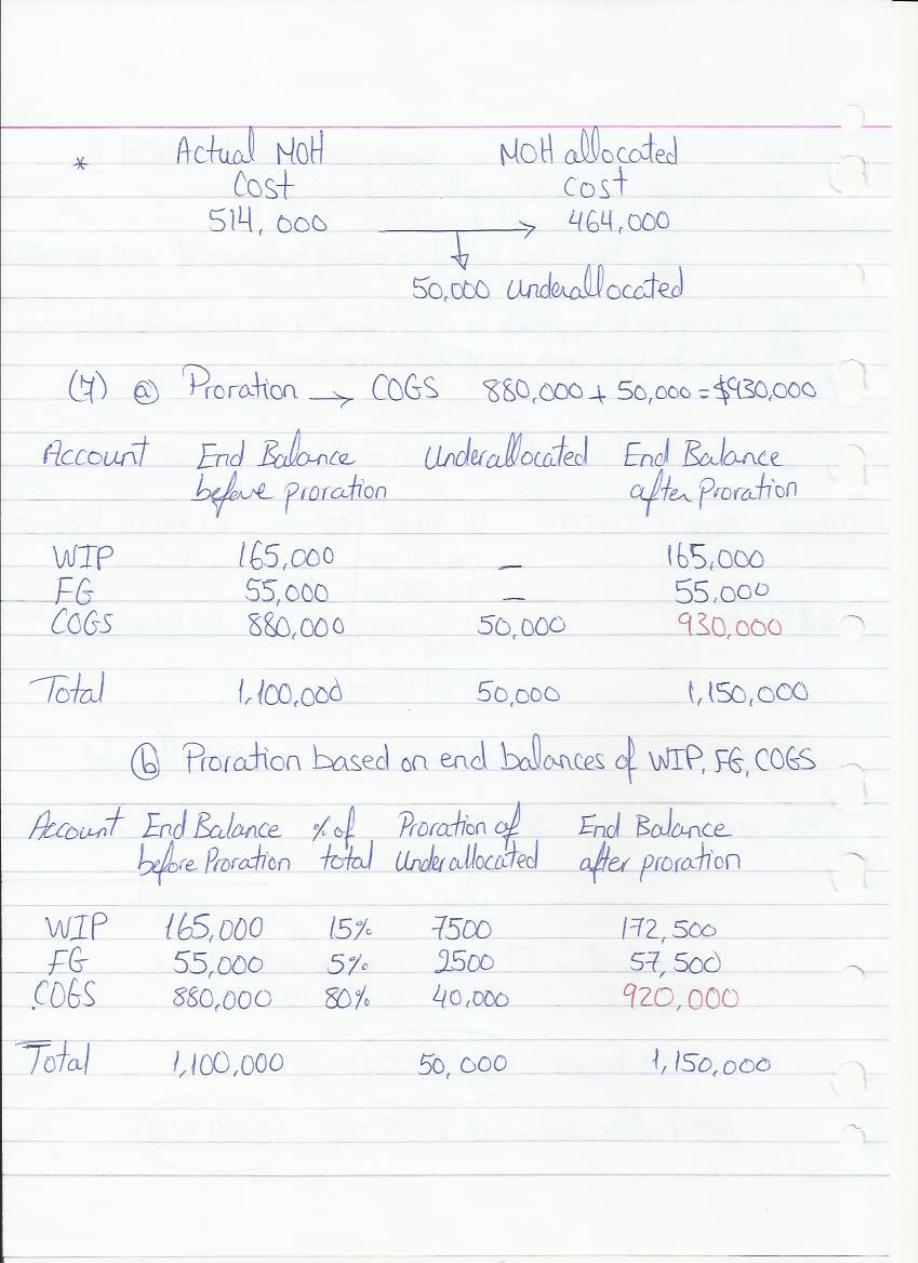 * Actual MOH MOH allocated
Cost cost
514,000 → 464,000
50,000 Underallocated
(7) (a) Proration → COGS 880,000 + 50,000 = $930,000
Account End Balance Underallocated End Balance
before proration after Proration
WIP 165,000 – 165,000
FG 55,000 – 55,000
COGS 880,000 50,000 930,000
Total 1,100,000 50,000 1,150,000
(b) Proration based on end balances of WIP, FG, COGS
Account End Balance % of Proration of End Balance
before Proration total Underallocated after proration
WIP 165,000 15% 7500 172,500
FG 55,000 5% 2500 57,500
COGS 880,000 80% 40,000 920,000
Total 1,100,000 50,000 1,150,000